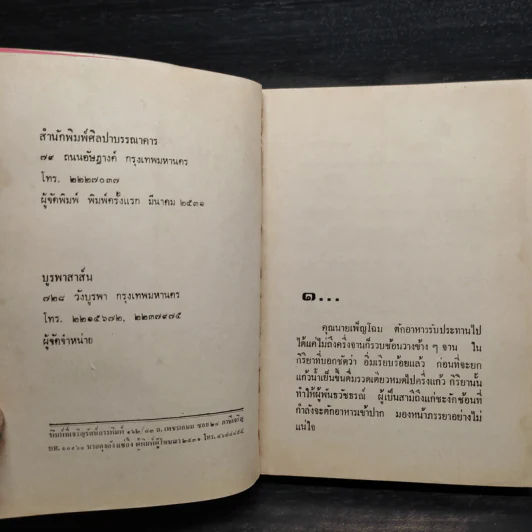 สำนักพิมพ์ศิลปาบรรณาคาร
๗๙ ถนนอัษฎางค์ กรุงเทพมหานคร
โทร. ๒๒๒๗๐๓๗
ผู้จัดพิมพ์ พิมพ์ครั้งแรก มีนาคม ๒๕๓๑
บูรพาสาส์น
๗๒๘ วังบูรพา กรุงเทพมหานคร
โทร. ๒๒๑๕๖๗๒, ๒๒๓๗๙๗๕
ผู้จัดจำหน่าย
๑...
คุณนายเพ็ญโฉม ตักอาหารรับประทานไป
ได้แค่ไม่ถึงครึ่งจานก็รวบช้อนวางข้าง ๆ จาน ใน
กิริยาที่บอกชัดว่า อิ่มเรียบร้อยแล้ว ก่อนที่จะยก
แก้วน้ำเย็นขึ้นดื่มรวดเดียวหมดไปครึ่งแก้ว กิริยานั้น
ทำให้ผู้พันธวัชธรณ์ ผู้เป็นสามีถึงแก่ชะงักช้อนที่
กำลังจะตักอาหารเข้าปาก มองหน้าภรรยาอย่างไม่
แน่ใจ